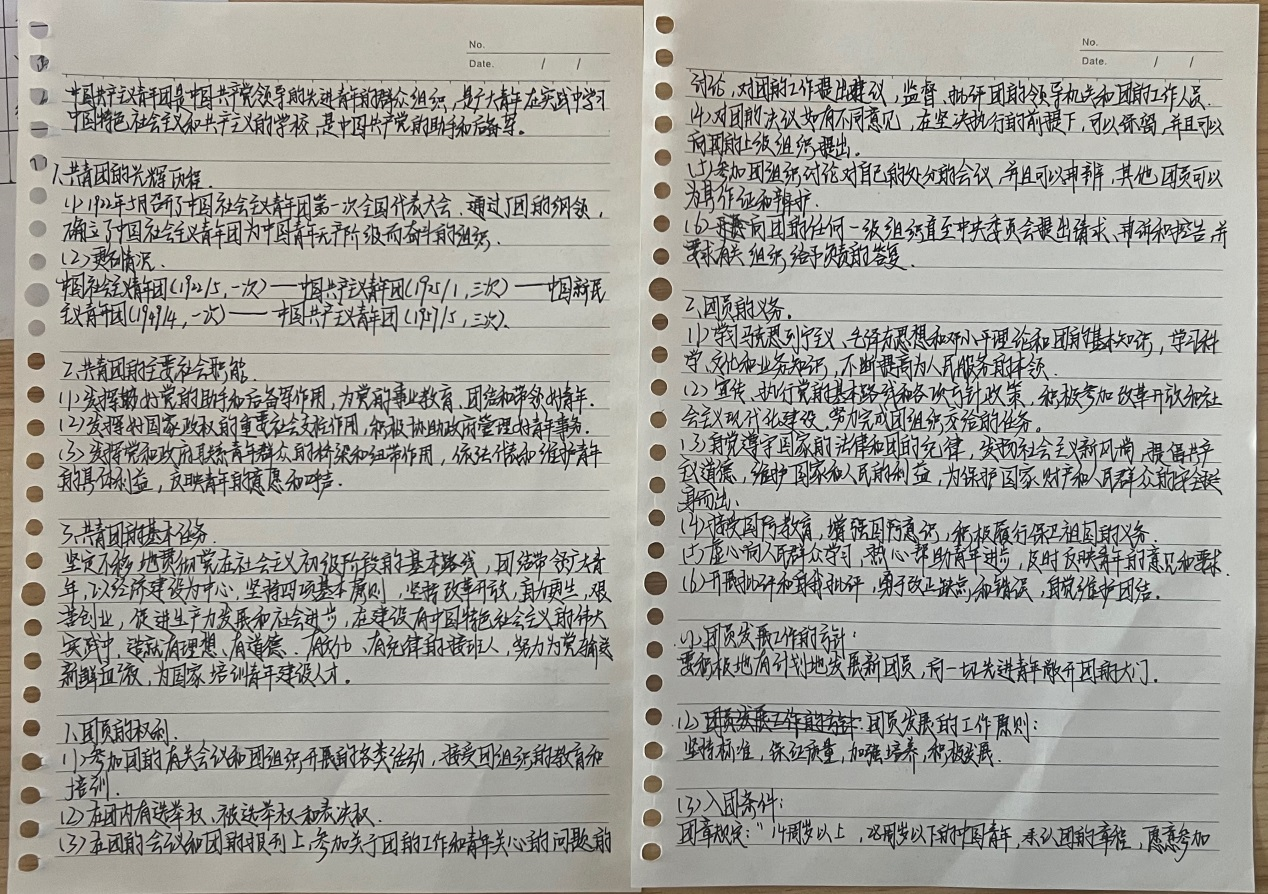 No.
Date. / /
中国共产主义青年团是中国共产党领导的先进青年的群众组织,是广大青年在实践中学习
中国特色社会主义和共产主义的学校,是中国共产党的助手和后备军。
1.共青团的光辉历程.
(1)1922年5月召开了中国社会主义青年团第一次全国代表大会.通过了团的纲领,
确立了中国社会主义青年团为中国青年无产阶级而奋斗的组织.
(2)更名情况.
中国社会主义青年团(1922/5,一次)——中国共产主义青年团(1925/1,三次)——中国新民
主义青年团(1949/4,一次)——中国共产主义青年团(1957/5,三次).
2.共青团的主要社会职能.
(1)发挥好党的助手和后备军作用,为党的事业教育、团结和带领好青年.
(2)发挥好国家政权的重要社会支柱作用,积极协助政府管理好青年事务.
(3)发挥党和政府联系青年群众的桥梁和纽带作用,依法代表和维护青年
的具体利益,反映青年的意愿和呼声.
3.共青团的基本任务
坚定不移地贯彻党在社会主义初级阶段的基本路线,团结带领广大青
年,以经济建设为中心,坚持四项基本原则,坚持改革开放,自力更生,艰
苦创业,促进生产力发展和社会进步,在建设有中国特色社会主义的伟大
实践中,造就有理想、有道德、有文化、有纪律的接班人,努力为党输送
新鲜血液,为国家培训青年建设人才.
1.团员的权利.
(1)参加团的有关会议和团组织开展的各类活动,接受团组织的教育和
培训.
(2)在团内有选举权、被选举权和表决权.
(3)在团的会议和团的报刊上,参加关于团的工作和青年关心的问题的
No.
Date. / /
讨论,对团的工作提出建议,监督、批评团的领导机关和团的工作人员.
(4)对团的决议如有不同意见,在坚决执行的前提下,可以保留,并且可以
向团的上级组织提出.
(5)参加团组织讨论对自己的处分的会议,并且可以申辨,其他团员可以
为其作证和辩护.
(6)向团的任何一级组织直至中央委员会提出请求、申诉和控告,并
要求有关组织给予负责的答复.
2.团员的义务.
(1)学习马克思列宁主义、毛泽东思想和邓小平理论和团的基本知识,学习科
学、文化和业务知识,不断提高为人民服务的本领.
(2)宣传、执行党的基本路线和各项方针政策,积极参加改革开放和社
会主义现代化建设,努力完成团组织交给的任务.
(3)自觉遵守国家的法律和团的纪律,发扬社会主义新风尚,提倡共产
主义道德,维护国家和人民的利益,为保护国家财产和人民群众的安全挺
身而出.
(4)接受国防教育,增强国防意识,积极履行保卫祖国的义务.
(5)虚心向人民群众学习,热心帮助青年进步,及时反映青年的意见和要求.
(6)开展批评和自我批评,勇于改正缺点和错误,自觉维护团结.
(1)团员发展工作的方针:
要积极地有计划地发展新团员,向一切先进青年敞开团的大门.
(2)团员发展工作的方针:团员发展的工作原则:
坚持标准,保证质量,加强培养,积极发展.
(3)入团条件:
团章规定:"14周岁以上,28周岁以下的中国青年,承认团的章程,愿意参加